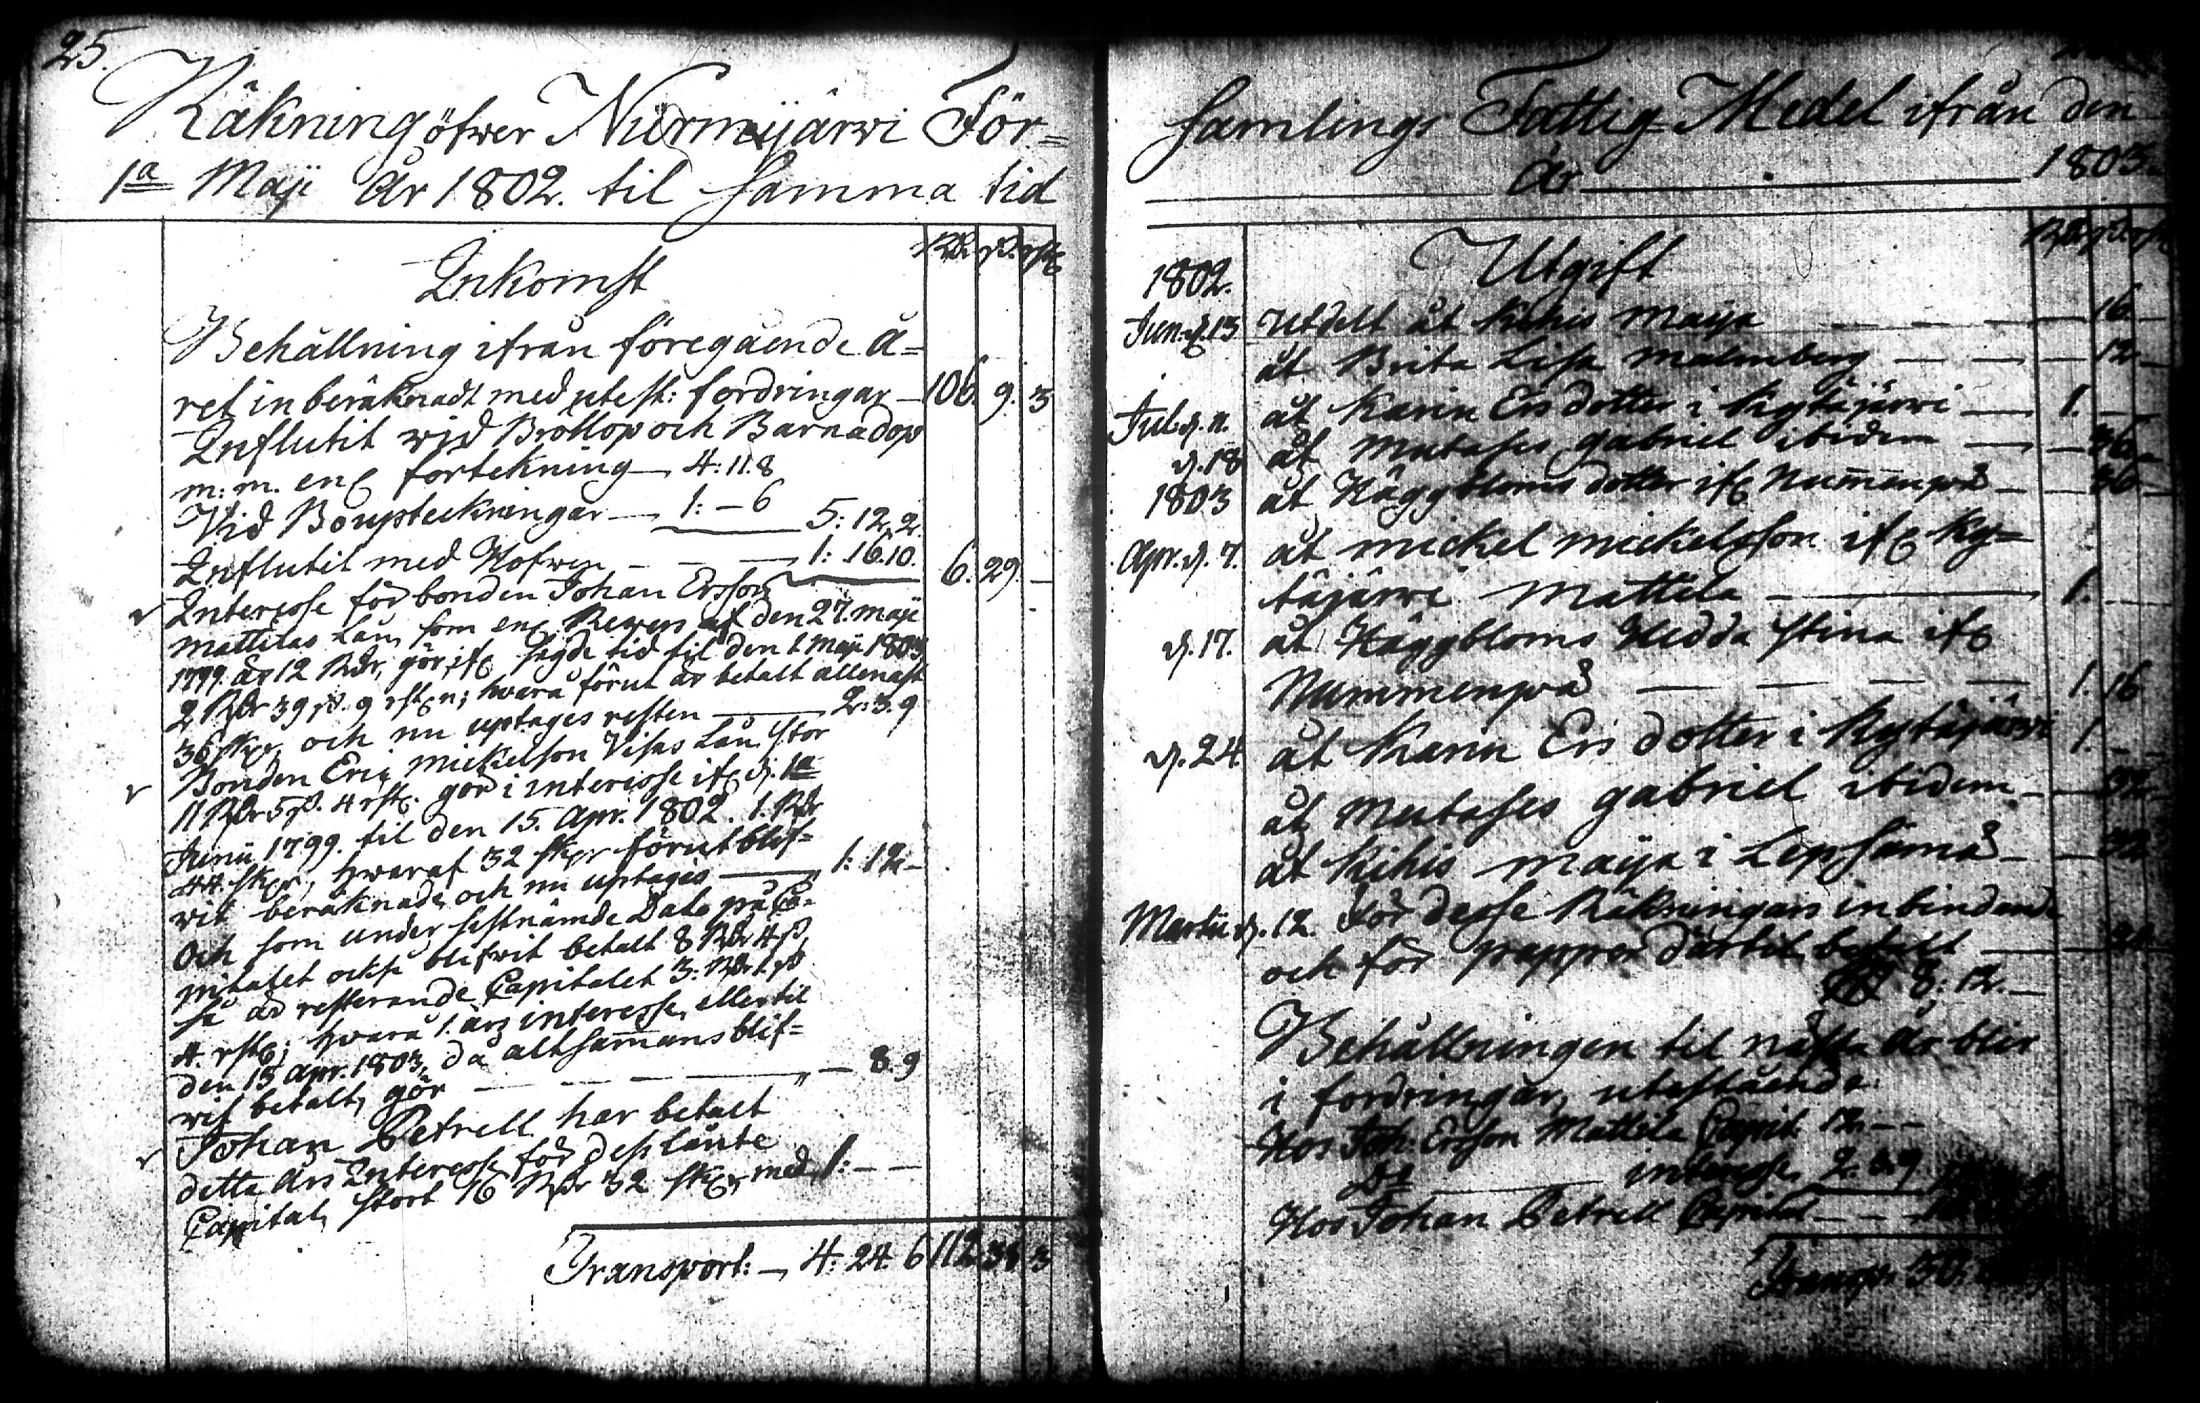 25.
Räkning öfwer Nurmijärwi För=
1a Maji År 1802. til samma tid
Inkomst
Behållning ifrån föregående å=
ret inberäknadt med utest: fordringar 106. 9. 3
Influtit wid Bröllop och Barnadop
m: m. enl förtekning 4: 11. 8
Vid Boupteckningar 1: – 6
5: 12. 2.
Influtit med Hofwen 1: 16. 10. 6. 29 –
Interesse för bonden Johan Ersson
Mattilas Lån, som enl Revers af den 27. maji
1799. är 12 Rdr, gör ifr sagde tid til den 1 Maji 1803
2 Rdr 39 s. 9 rst; hvarå förut är betalt allenast
36 sk, och nu uptages resten 2: 3. 9
Bonden Eric Mickelson Visas Lån stor
11 Rdr 5 s. 4 rst. gör i interesse ifr d. 1a
Junii 1799. til den 15. Apr. 1802. 1. Rdr
44. sk, hwaraf 32 sk förut blif=
wit beräknade och nu uptages 1: 12 –
Och som under sistnämde Dato på Ca=
pitalet också blifwit betalt 8 Rdr 4 s,
så är resterande Capitalet 3: Rdr 1 s
4. rst; hvarå 1. års interesse, eller til
den 15 Apr. 1803, då altsammans blif=
wit betalt, gör – 8. 9
Johan Petrell har betalt
detta års Interesse för dess lånte
Capital, stort 16 Rdr 32 sk, med 1: – –
Transport: 4: 24. 6 112 38 3
samlings Fattig-Medel ifrån den
År 1803.
Utgift
1802.
Jun. d. 13 Utdelt åt Kihis Maija 16
åt Brita Lisa Malmberg 12
Jul. d. 11 åt Karin Ersdotter i Kytäjärwi 1. –
d. 18 åt Mutases Gabriel ibidem 36
1803 åt Häggbloms dotter ifr Nummenpä 36
Apr. d. 7. åt Mickel Mickelsson ifr Ky=
täjärwi Mattila 1.
d. 17. åt Häggbloms Hedda Stina ifr
Nummenpä 1. 16
d. 24. åt Karin Ersdotter i Kytäjärwi 1. –
åt Mutases Gabriel ibidem 32
åt Kihis Maija i Lepsämä 32
Martii d. 12. För desse Räkningars inbindande
och för papper därtil betalt
8: 12. –
Behållningen til nästa År blir
i fordringar, utestående
Hos Joh. Ersson Mattila Capit 12. – –
D:o interesse 2. 3. 9
Hos Johan Petrell Capital
Transp. 30.